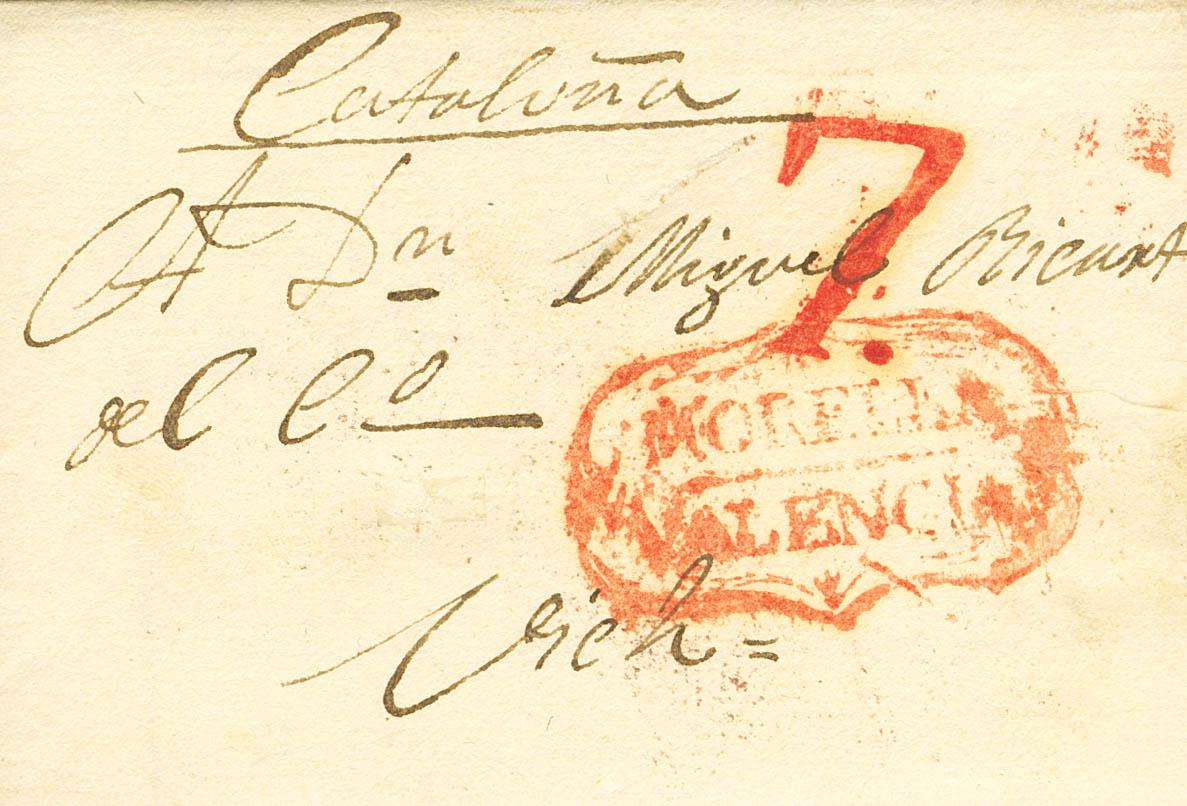 Cataloña
7.
A Dn Miguel Ricart
del Co
MORELLA
VALENCIA
Vich =